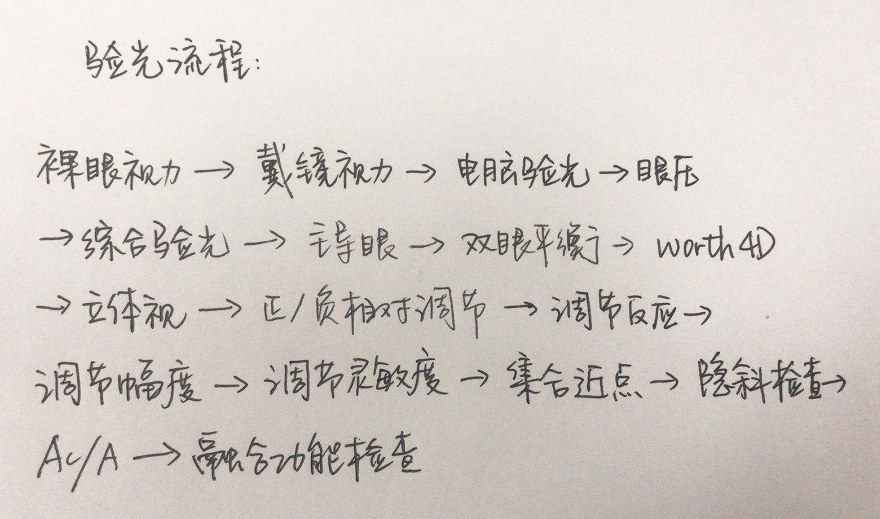 验光流程:
裸眼视力→戴镜视力→电脑验光→眼压
→综合验光→主导眼→双眼平衡→worth 4D
→立体视→正/负相对调节→调节反应→
调节幅度→调节灵敏度→集合近点→隐斜检查→
Ac/A→融合功能检查